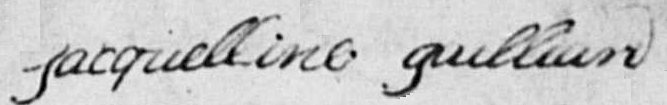 jacquelline guilluin